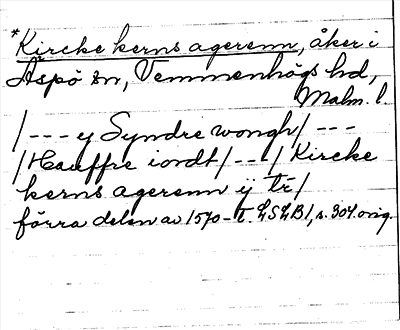 *Kircke kerns agerenn, åker i
Äspö sn, Vemmenhögs hd,
Malm. l.
/--- ij Syndre wongh/ ---
/Hauffre iordt/--/ Kircke
kerns agerenn ij tr/
förra delen av 1570-t. LSLB1, s. 304 orig.